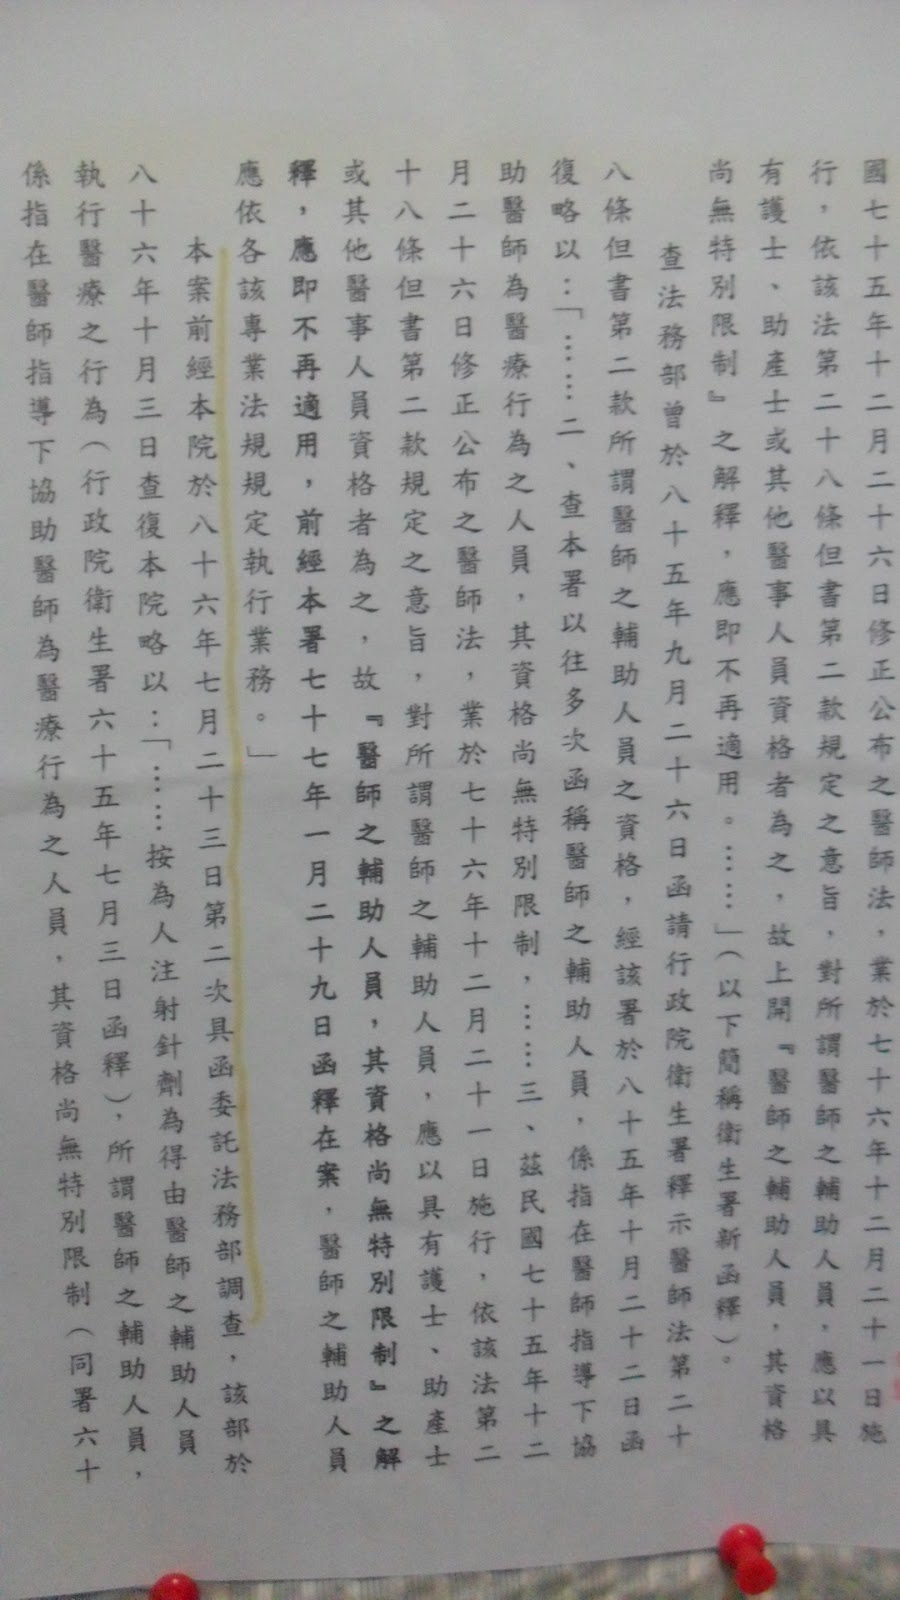 國七十五年十二月二十六日修正公布之醫師法，業於七十六年十二月二十一日施
行，依該法第二十八條但書第二款規定之意旨，對所謂醫師之輔助人員，應以具
有護士、助產士或其他醫事人員資格者為之，故上開『醫師之輔助人員，其資格
尚無特別限制』之解釋，應即不再適用。……」（以下簡稱衛生署新函釋）。
查法務部曾於八十五年九月二十六日函請行政院衛生署釋示醫師法第二十
八條但書第二款所謂醫師之輔助人員之資格，經該署於八十五年十月二十二日函
復略以：「……二、查本署以往多次函稱醫師之輔助人員，係指在醫師指導下協
助醫師為醫療行為之人員，其資格尚無特別限制，……三、茲民國七十五年十二
月二十六日修正公布之醫師法，業於七十六年十二月二十一日施行，依該法第二
十八條但書第二款規定之意旨，對所謂醫師之輔助人員，應以具有護士、助產士
或其他醫事人員資格者為之，故『醫師之輔助人員，其資格尚無特別限制』之解
釋，應即不再適用，前經本署七十七年一月二十九日函釋在案，醫師之輔助人員
應依各該專業法規規定執行業務。」
本案前經本院於八十六年七月二十三日第二次具函委託法務部調查，該部於
八十六年十月三日查復本院略以：「……按為人注射針劑為得由醫師之輔助人員
執行醫療之行為（行政院衛生署六十五年七月三日函釋），所謂醫師之輔助人員，
係指在醫師指導下協助醫師為醫療行為之人員，其資格尚無特別限制（同署六十